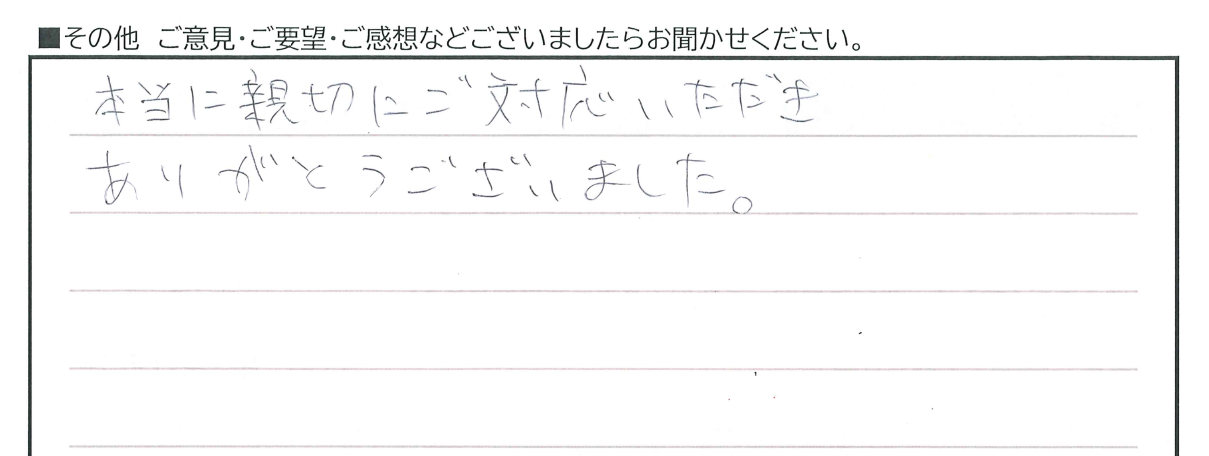 ■その他 ご意見・ご要望・ご感想などございましたらお聞かせください。
本当に親切にご対応いただき
ありがとうございました。